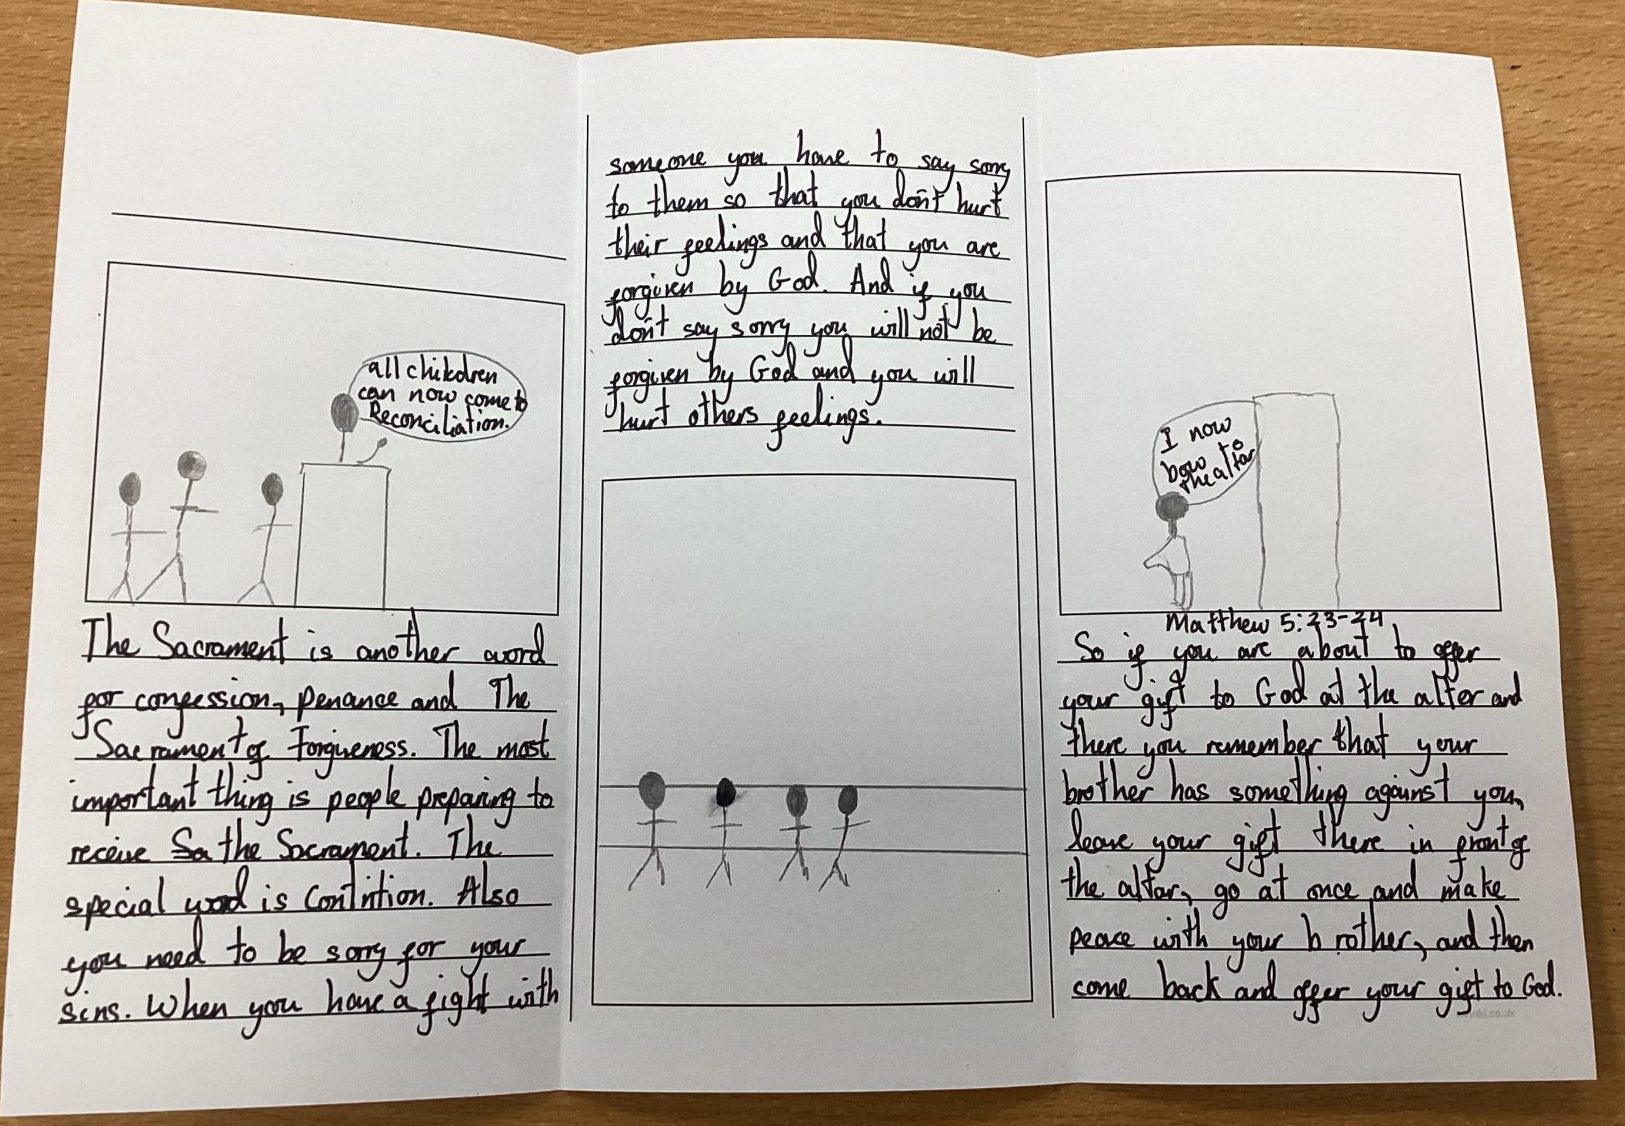 all chikdren
can now come to
Reconciliation.
The Sacrament is another word
for confession, Penance and The
Sacrament of Forgiveness. The most
important thing is people preparing to
receive the Sacrament. The
special word is Contrition. Also
you need to be sorry for your
sins. When you have a fight with
someone you have to say sorry
to them so that you don't hurt
their feelings and that you are
forgiven by God. And if you
don't say sorry you will not be
forgiven by God and you will
hurt others feelings.
I now
bow to
the altar
Matthew 5:23-24
So if you are about to offer
your gift to God at the alter and
there you remember that your
brother has something against you,
leave your gift there in front of
the altar, go at once and make
peace with your brother, and then
come back and offer your gift to God.